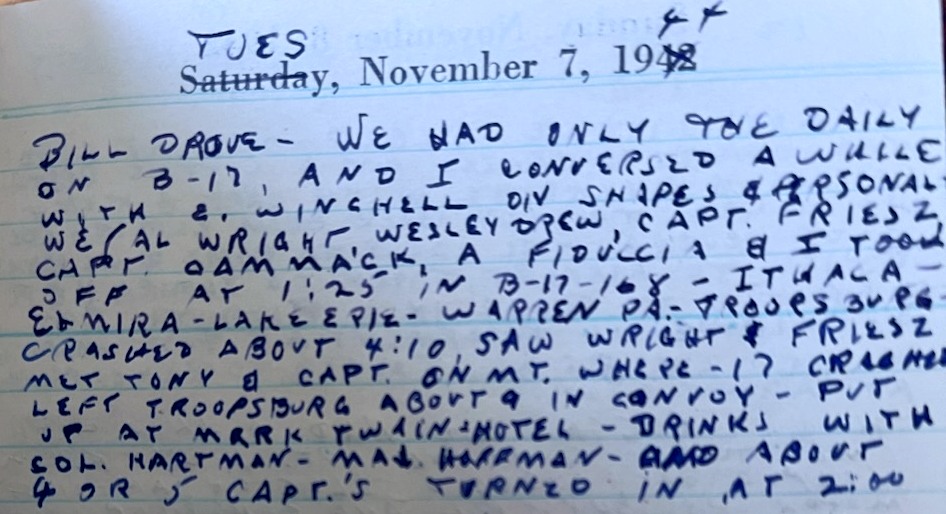 TUES 44
Saturday, November 7, 1942
BILL DROVE - WE HAD ONLY THE DAILY
ON B-17, AND I CONVERSED A WHILE
WITH E. WINGHELL ON SHAPES & PERSONAL
WE (AL WRIGHT, WESLEY DREW, CAPT. FRIESZ
CAPT. DAMMACK, A FIDUCCIA & I TOOK
OFF AT 1:25 IN B-17-168 - ITHACA -
ELMIRA - LAKE ERIE - WARREN PA. - TROUPSBURG
CRASHED ABOUT 4:10, SAW WRIGHT & FRIESZ
MET TONY & CAPT. ON MT. WHERE -17 CRASHED
LEFT TROOPSBURG ABOUT 9 IN CONVOY - PUT
UP AT MARK TWAIN HOTEL - DRINKS WITH
COL. HARTMAN - MAJ. HOFFMAN - AND ABOUT
4 OR 5 CAPT.'S TURNED IN AT 2:00